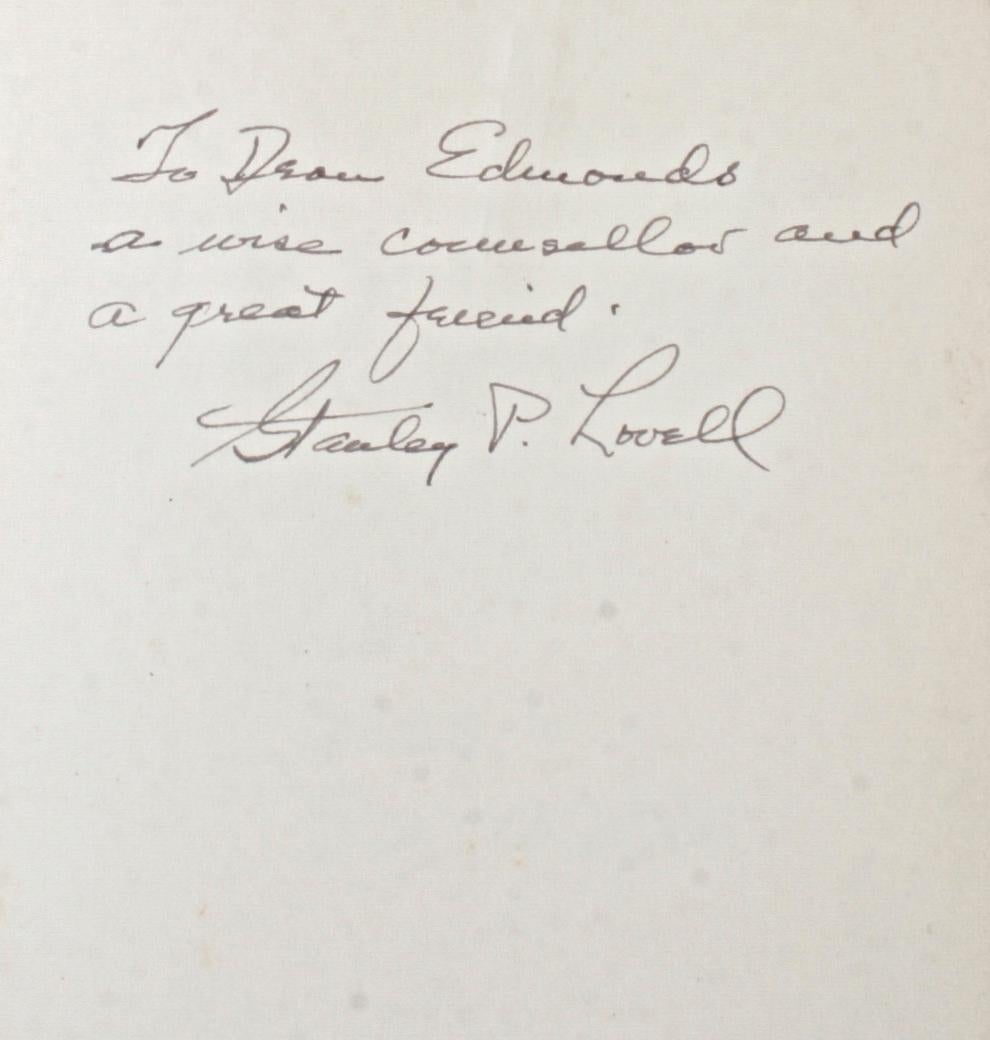 To Dean Edmonds
a wise counsellor and
a great friend.
Stanley P. Lovell